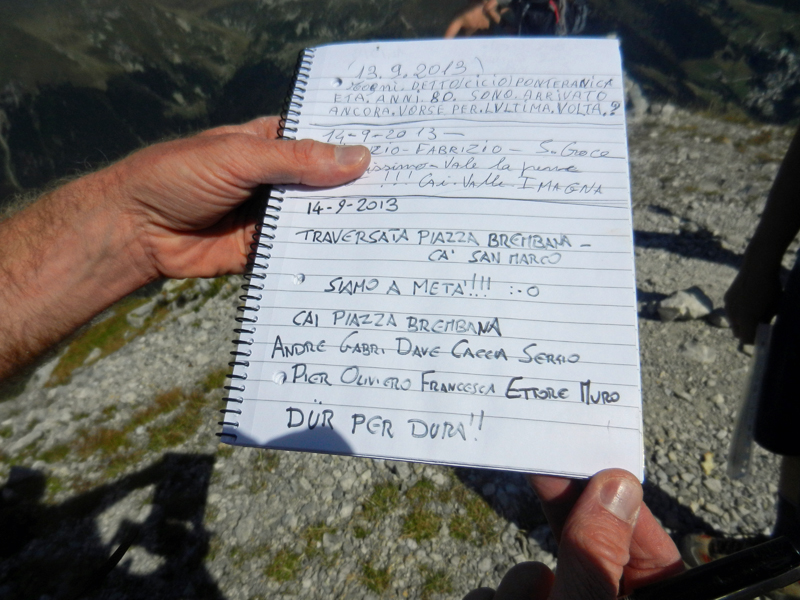 13.9.2013
DETTO CICIO PONTERANICA
ETA. ANNI. 80. SONO. ARRIVATO
ANCORA. VORSE. PER. LVLTIMA. VOLTA. ?
14-9-2013-
ZIO-FABRIZIO-S.Croce
issimo-Vale la pena
!!! Cai-Valle IMAGNA
14-9-2013
TRAVERSATA PIAZZA BREMBANA -
CA' SAN MARCO
SIAMO A META'!!! :-O
CAI PIAZZA BREMBANA
ANDRE GABRI DAVE CACCIA SERGIO
PIER OLIVIERO FRANCESCA ETTORE MURO
DÜR PER DURA'!!